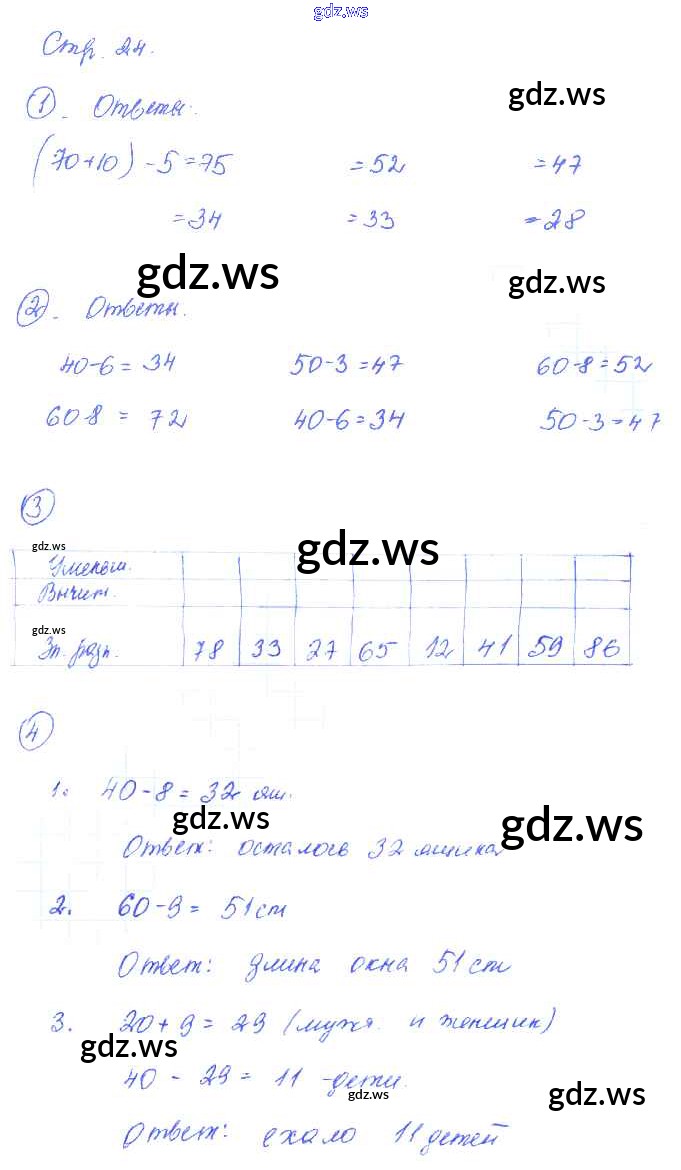 gdz.ws
Стр. 24.
1. Ответы. gdz.ws
(70+10) - 5 = 75 = 52 = 47
= 34 = 33 = 28
gdz.ws gdz.ws
2. Ответы.
40-6 = 34 50-3 = 47 60-8 = 52
60 8 = 72 40-6 = 34 50-3 = 47
3
gdz.ws gdz.ws
Уменьш.
Вычит.
gdz.ws
Зн. разн. 78 33 27 65 12 41 59 86
4
1. 40-8 = 32 ящ.
gdz.ws gdz.ws
Ответ: осталось 32 ящика
2. 60-9 = 51 cm
Ответ: длина окна 51 cm
3. 20+9 = 29 (мужч. и женщин)
gdz.ws
40 - 29 = 11 -дети.
gdz.ws gdz.ws
Ответ: ехало 11 детей